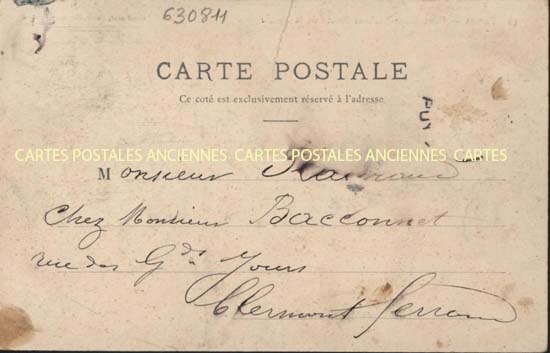 630811
CARTE POSTALE
Ce côté est exclusivement réservé à l'adresse
PUY
CARTES POSTALES ANCIENNES CARTES POSTALES ANCIENNES CARTES
Monsieur
Chez Monsieur Bacconnet
rue des Gds Jours
Clermont Ferrand